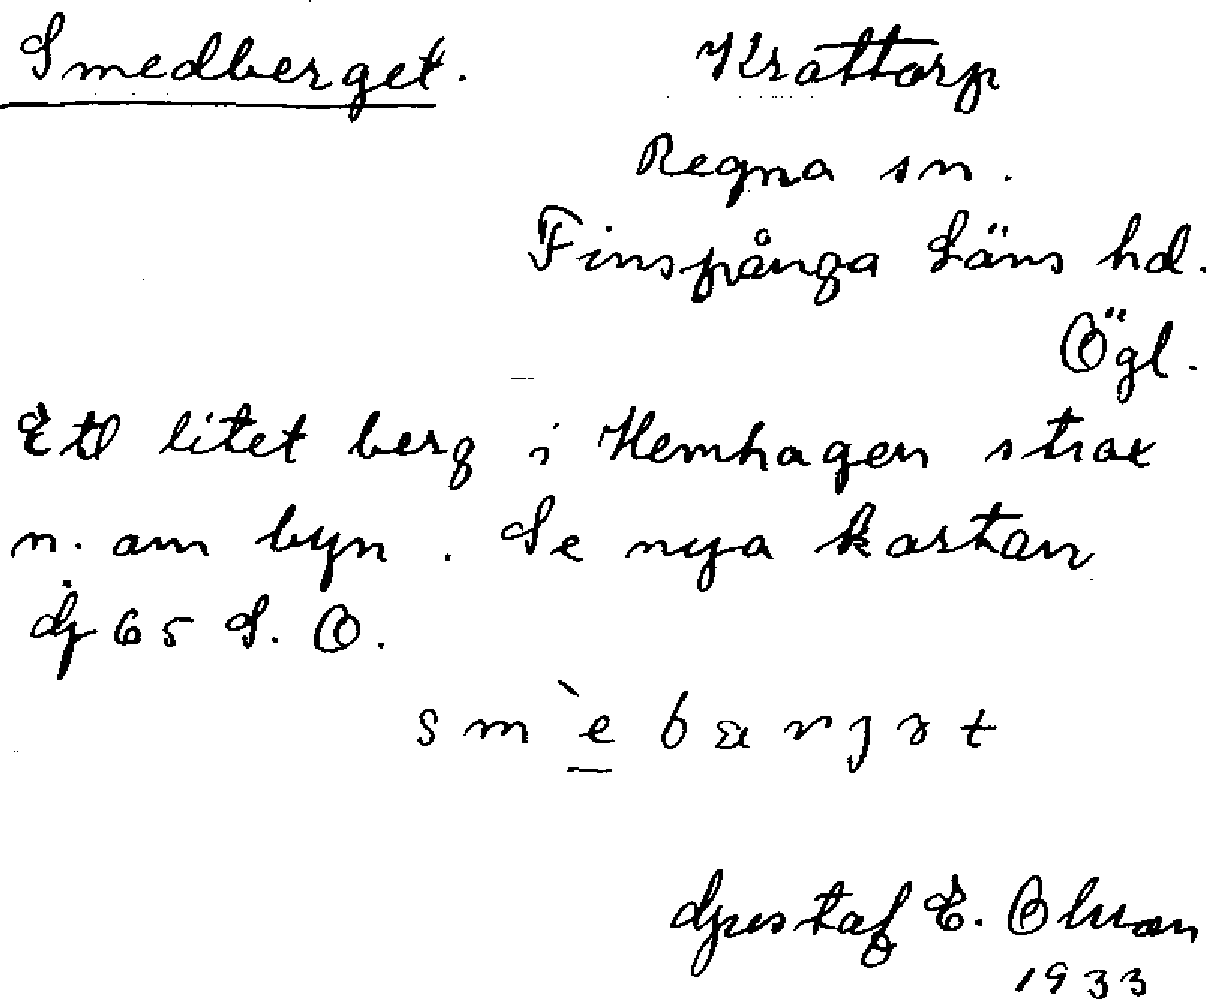 Smedberget. Krattorp
Regna sn.
Finspånga Läns hd.
Ögl.
Ett litet berg i Hemhagen strax
n. om byn. Se nya kartan
65 S. O.
Gustaf E. Olson
1933